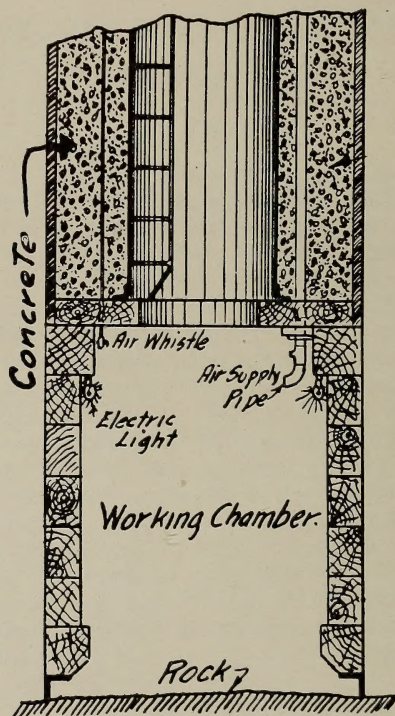 Concrete
Air Whistle
Air Supply
Pipe
Electric
Light
Working Chamber.
Rock